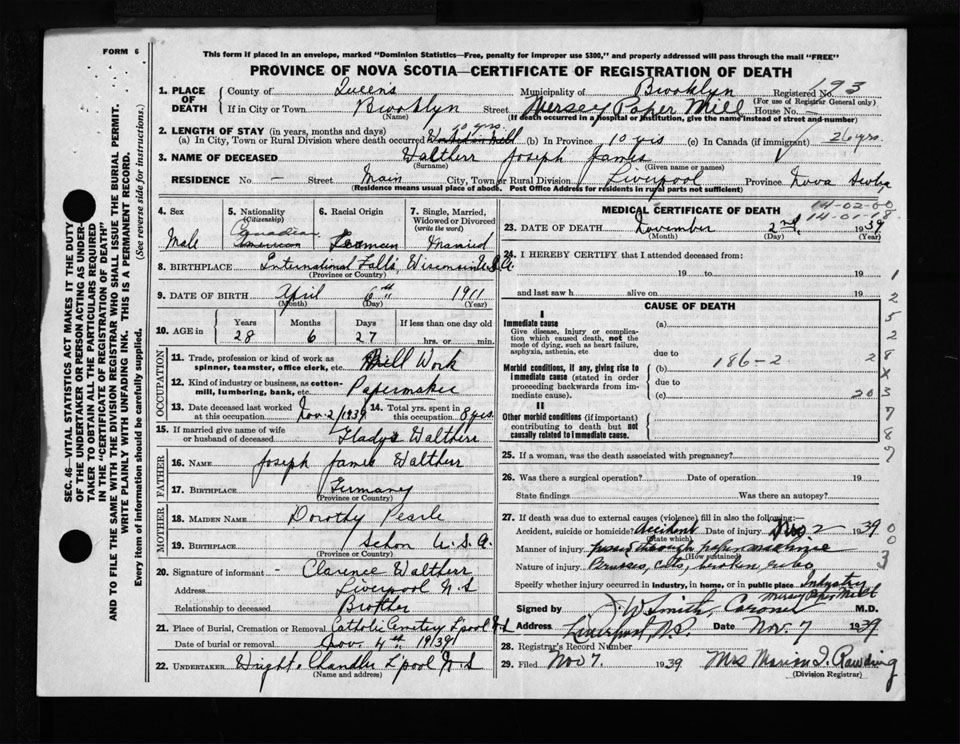 FORM 6
This form if placed in an envelope, marked "Dominion Statistics—Free, penalty for improper use $300," and properly addressed will pass through the mail "FREE"
PROVINCE OF NOVA SCOTIA—CERTIFICATE OF REGISTRATION OF DEATH
1. PLACE OF DEATH { County of Queens Municipality of Brooklyn Registered No. 193
(For use of Registrar General only)
If in City or Town Brooklyn Street Mersey Paper Mill House No. —
(Name) (If death occurred in a hospital or institution, give the name instead of street and number)
2. LENGTH OF STAY (in years, months and days)
(a) In City, Town or Rural Division where death occurred 10 yrs. (b) In Province 10 yrs (c) In Canada (if immigrant) 26 yrs.
3. NAME OF DECEASED Waltherr Joseph James
(Surname) (Given name or names)
RESIDENCE No. — Street Main City, Town or Rural Division Liverpool Province Nova Scotia
(Residence means usual place of abode. Post Office Address for residents in rural parts not sufficient)
4. Sex Male
5. Nationality (Citizenship) Canadian American
6. Racial Origin German
7. Single, Married, Widowed or Divorced (write the word) Married
8. BIRTHPLACE International Falls, Wisconsin U.S.A.
(Province or Country)
9. DATE OF BIRTH April 6th 1911
(Month) (Day) (Year)
10. AGE in Years Months Days If less than one day old
28 6 27 hrs. or min.
OCCUPATION
11. Trade, profession or kind of work as spinner, teamster, office clerk, etc. Mill Work
12. Kind of industry or business, as cotton-mill, lumbering, bank, etc. Papermaker
13. Date deceased last worked at this occupation Nov. 2/1939 14. Total yrs. spent in this occupation 8 yrs.
15. If married give name of wife or husband of deceased Gladys Waltherr
FATHER
16. NAME Joseph James Waltherr
17. BIRTHPLACE Germany
(Province or Country)
MOTHER
18. MAIDEN NAME Dorothy Pearle
19. BIRTHPLACE U.S.A.
(Province or Country)
20. Signature of informant - Clarence Waltherr
Address Liverpool N.S
Relationship to deceased Brother
21. Place of Burial, Cremation or Removal Catholic Cemetery L'pool N.S
Date of burial or removal Nov. 4th 1939
22. UNDERTAKER Wright & Chandler L'pool N.S
(Name and address)
MEDICAL CERTIFICATE OF DEATH
14-02-00
14-01-18
23. DATE OF DEATH November 2nd 1939
(Month) (Day) (Year)
24. I HEREBY CERTIFY that I attended deceased from:
19 to 19
and last saw h alive on 19
CAUSE OF DEATH
I
Immediate cause (a)
Give disease, injury or complication which caused death, not the mode of dying, such as heart failure, asphyxia, asthenia, etc
due to
(b) 186-2
Morbid conditions, if any, giving rise to immediate cause (stated in order proceeding backwards from immediate cause).
due to
(c) 203
II
Other morbid conditions (if important) contributing to death but not causally related to immediate cause.
1 2 5 2 28 X 3 7 8 9
25. If a woman, was the death associated with pregnancy?
26. Was there a surgical operation? Date of operation 19
State findings Was there an autopsy?
27. If death was due to external causes (violence) fill in also the following:—
Accident, suicide or homicide? Accident Date of injury Nov 2 — 1939
(State which)
Manner of injury passing through paper machine
(How sustained)
Nature of injury Bruises, cuts, broken ribs
Specify whether injury occurred in industry, in home, or in public place Industry
Mersey Paper Mill
0 0 3
Signed by J. W Smith, Coroner M.D.
Address Liverpool, N.S. Date Nov. 7 1939
28. Registrar's Record Number
29. Filed Nov 7. 1939 Mrs Marion I. Rawding
(Division Registrar)
SEC. 46—VITAL STATISTICS ACT MAKES IT THE DUTY
OF THE UNDERTAKER OR PERSON ACTING AS UNDER-
TAKER TO OBTAIN ALL THE PARTICULARS REQUIRED
IN THE "CERTIFICATE OF REGISTRATION OF DEATH"
AND TO FILE THE SAME WITH THE DIVISION REGISTRAR WHO SHALL ISSUE THE BURIAL PERMIT.
WRITE PLAINLY WITH UNFADING INK. THIS IS A PERMANENT RECORD.
Every item of information should be carefully supplied. (See reverse side for instructions.)